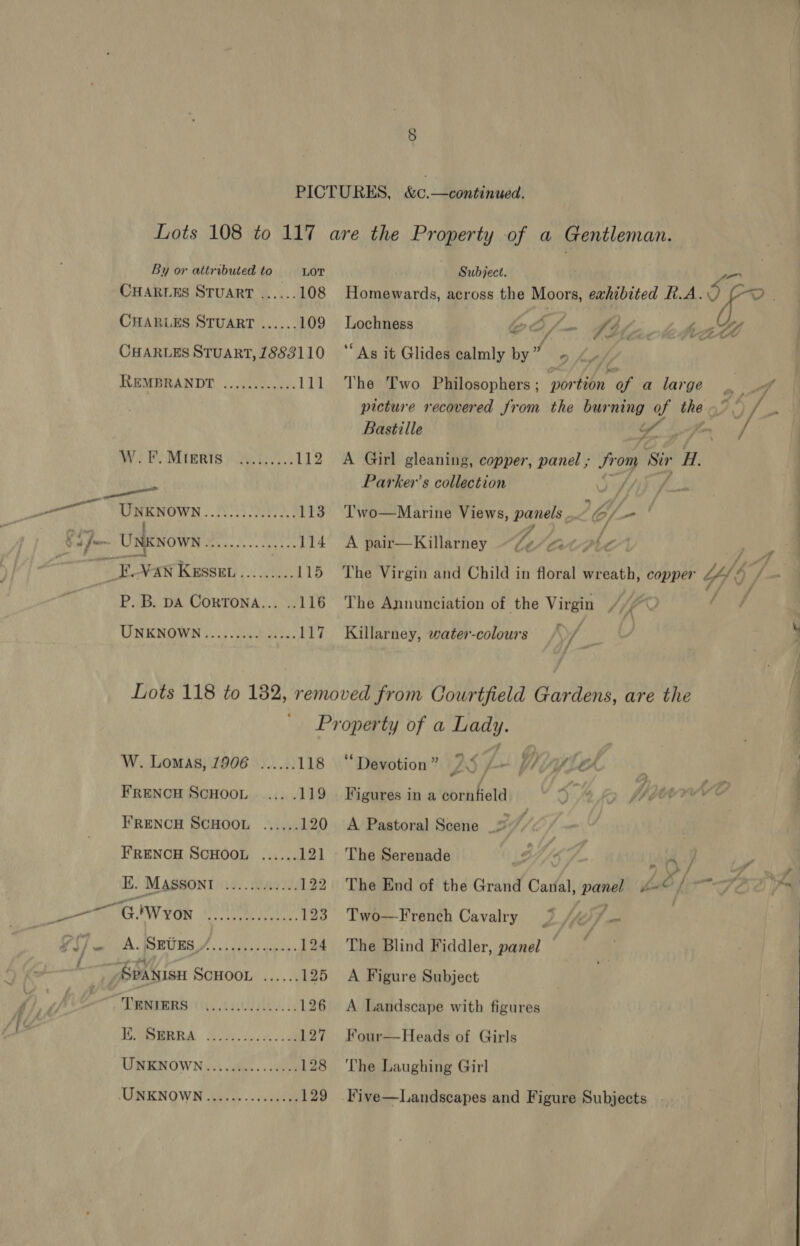 8
PICTURES, &c.—continued.
Lots 108 to 117 are the Property of a Gentleman.
By or attributed to LOT Subject.
CHARLES STUART ...... 108 Homewards, across the Moors, exhibited R.A.
CHARLES STUART ...... 109 Lochness
CHARLES STUART, 1883 110 “As it Glides calmly by”
REMBRANDT ............ 111 The Two Philosophers; portion of a large
picture recovered from the burning of the
Bastille
W. F. MIERIS ......... 112 A Girl gleaning, copper, panel; from Sir H.
Parker's collection
UNKNOWN ............... 113 Two—Marine Views, panels
UNKNOWN ............... 114 A pair—Killarney
F. VAN KESSEL ......... 115 The Virgin and Child in floral wreath, copper
P. B. DA CORTONA... ..116 The Annunciation of the Virgin
UNKNOWN ......... ..... 117 Killarney, water-colours
Lots 118 to 132, removed from Courtfield Gardens, are the
Property of a Lady.
W. LOMAS, 1906 ...... 118 “Devotion”
FRENCH SCHOOL ... .119 Figures in a cornfield
FRENCH SCHOOL ...... 120 A Pastoral Scene
FRENCH SCHOOL ...... 121 The Serenade
E. MASSONI ............ 122 The End of the Grand Canal, panel
G. WYON ............... 123 Two—French Cavalry
A. SEUES ............... 124 The Blind Fiddler, panel
SPANISH SCHOOL ...... 125 A Figure Subject
TENIERS ............... 126 A Landscape with figures
E. SERRA ............... 127 Four—Heads of Girls
UNKNOWN ............... 128 The Laughing Girl
UNKNOWN ............... 129 Five—Landscapes and Figure Subjects